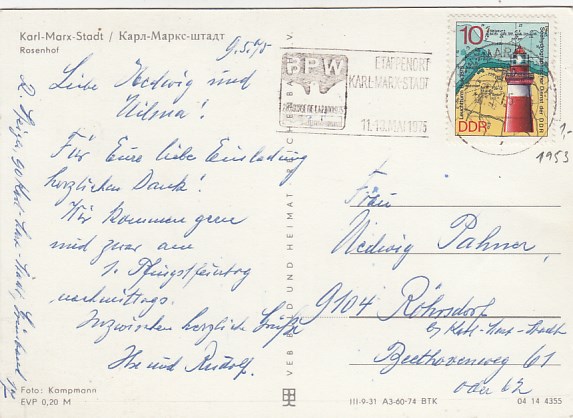 Karl-Marx-Stadt / Карл-Маркс-штадт
Rosenhof
9.5.75
Liebe Hedwig und
Wilma!
Für Eure liebe Einladung
herzlichen Dank!
Wir kommen gern
und zwar am
1. Pfingstfeiertag
nachmittags.
Inzwischen herzliche Grüße
Ilse und Rudolf.
90 Karl-Marx-Stadt,
Foto: Kampmann
EVP 0,20 M
VEB BILD UND HEIMAT REICHENBACH
ETAPPENORT
KARL-MARX-STADT
11.-13. MAI 1975
10
DDR
1,-
1953
Frau
Hedwig Pahner,
9104 Röhrsdorf
b/ Karl-Marx-Stadt
Beethovenweg 61
oder 62
III-9-31 A3-60-74 BTK
04 14 4355